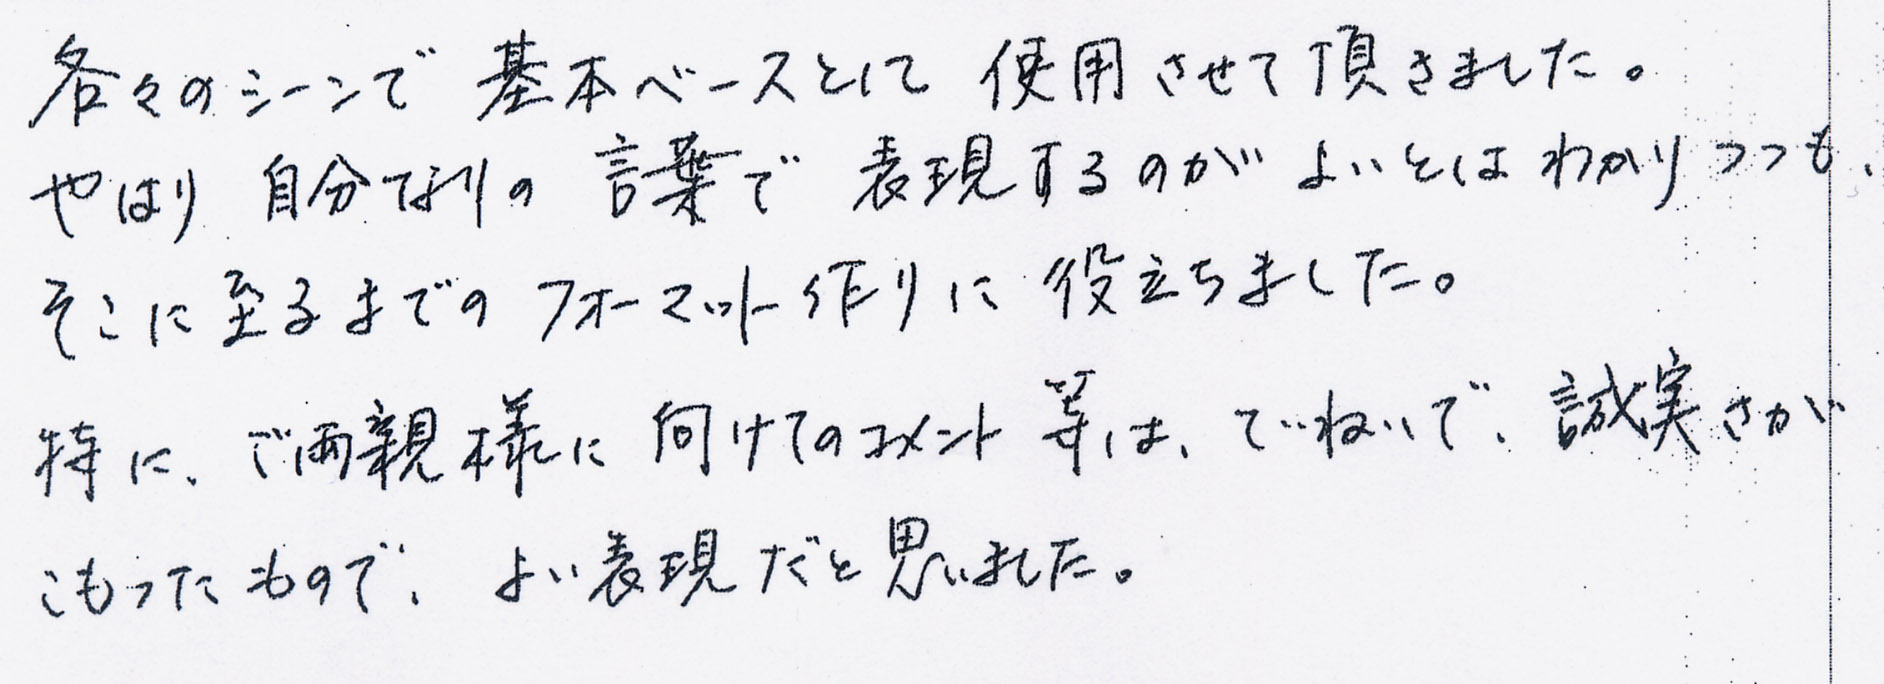 各々のシーンで基本ベースとして使用させて頂きました。
やはり自分なりの言葉で表現するのがよいとはわかりつつも、
そこに至るまでのフォーマット作りに役立ちました。
特に、ご両親様に向けてのコメント等は、ていねいで、誠実さが
こもったもので、よい表現だと思いました。